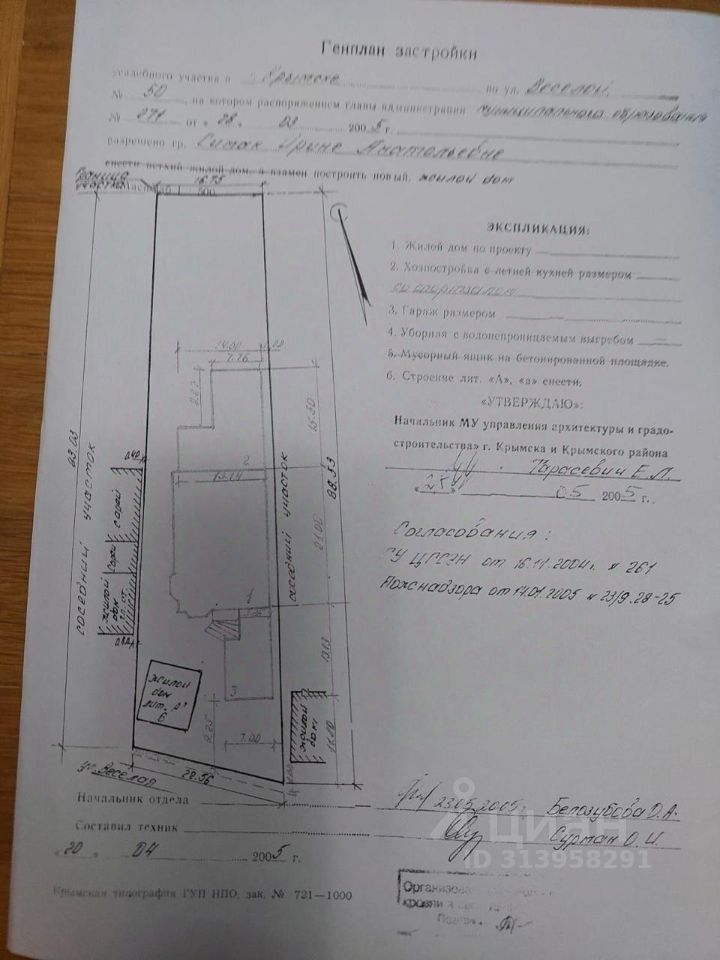 Генплан застройки
Усадебного участка в г. Крымске по ул. Веселой
№ 50, на котором распоряжением главы администрации муниципального образования
№ 271 от „28. 03 2005 г.
разрешено гр. Ирине Анатольевне
снести ветхий жилой дом, а взамен построить новый. жилой дом
Граница участка
16.75
Масштаб 1 500
ЭКСПЛИКАЦИЯ:
1. Жилой дом по проекту
2. Хозпостройка с летней кухней размером
со спортзалом
3. Гараж размером
4. Уборная с водонепроницаемым выгребом
5. Мусорный ящик на бетонированной площадке.
6. Строение лит. «А», «а» снести.
«УТВЕРЖДАЮ»:
Начальник МУ управления архитектуры и градо-
строительства» г. Крымска и Крымского района
Тарасевич Е.Л.
25 05 2005 г.
Согласования:
ГУ ЦГСЭН от 16.11.2004г. № 261
Пожнадзора от 14.01.2005 № 23/9.28-25
14.00
7.76
15.50
88.53
93.03
соседний участок
соседний участок
сарай
сарай
жилой дом
2
15.14
21.00
1
13.13
жилой дом лит. А
6
3
9.25
7.00
жилой дом
11.00
28.56
ул. Веселая
Начальник отдела 23.05.2005г. Белозубова О.А.
Составил техник Сурман О.И.
„20 04 2005 г.
Крымская типография ГУП НПО, зак. № 721—1000
ЦИАН
ID 313958291